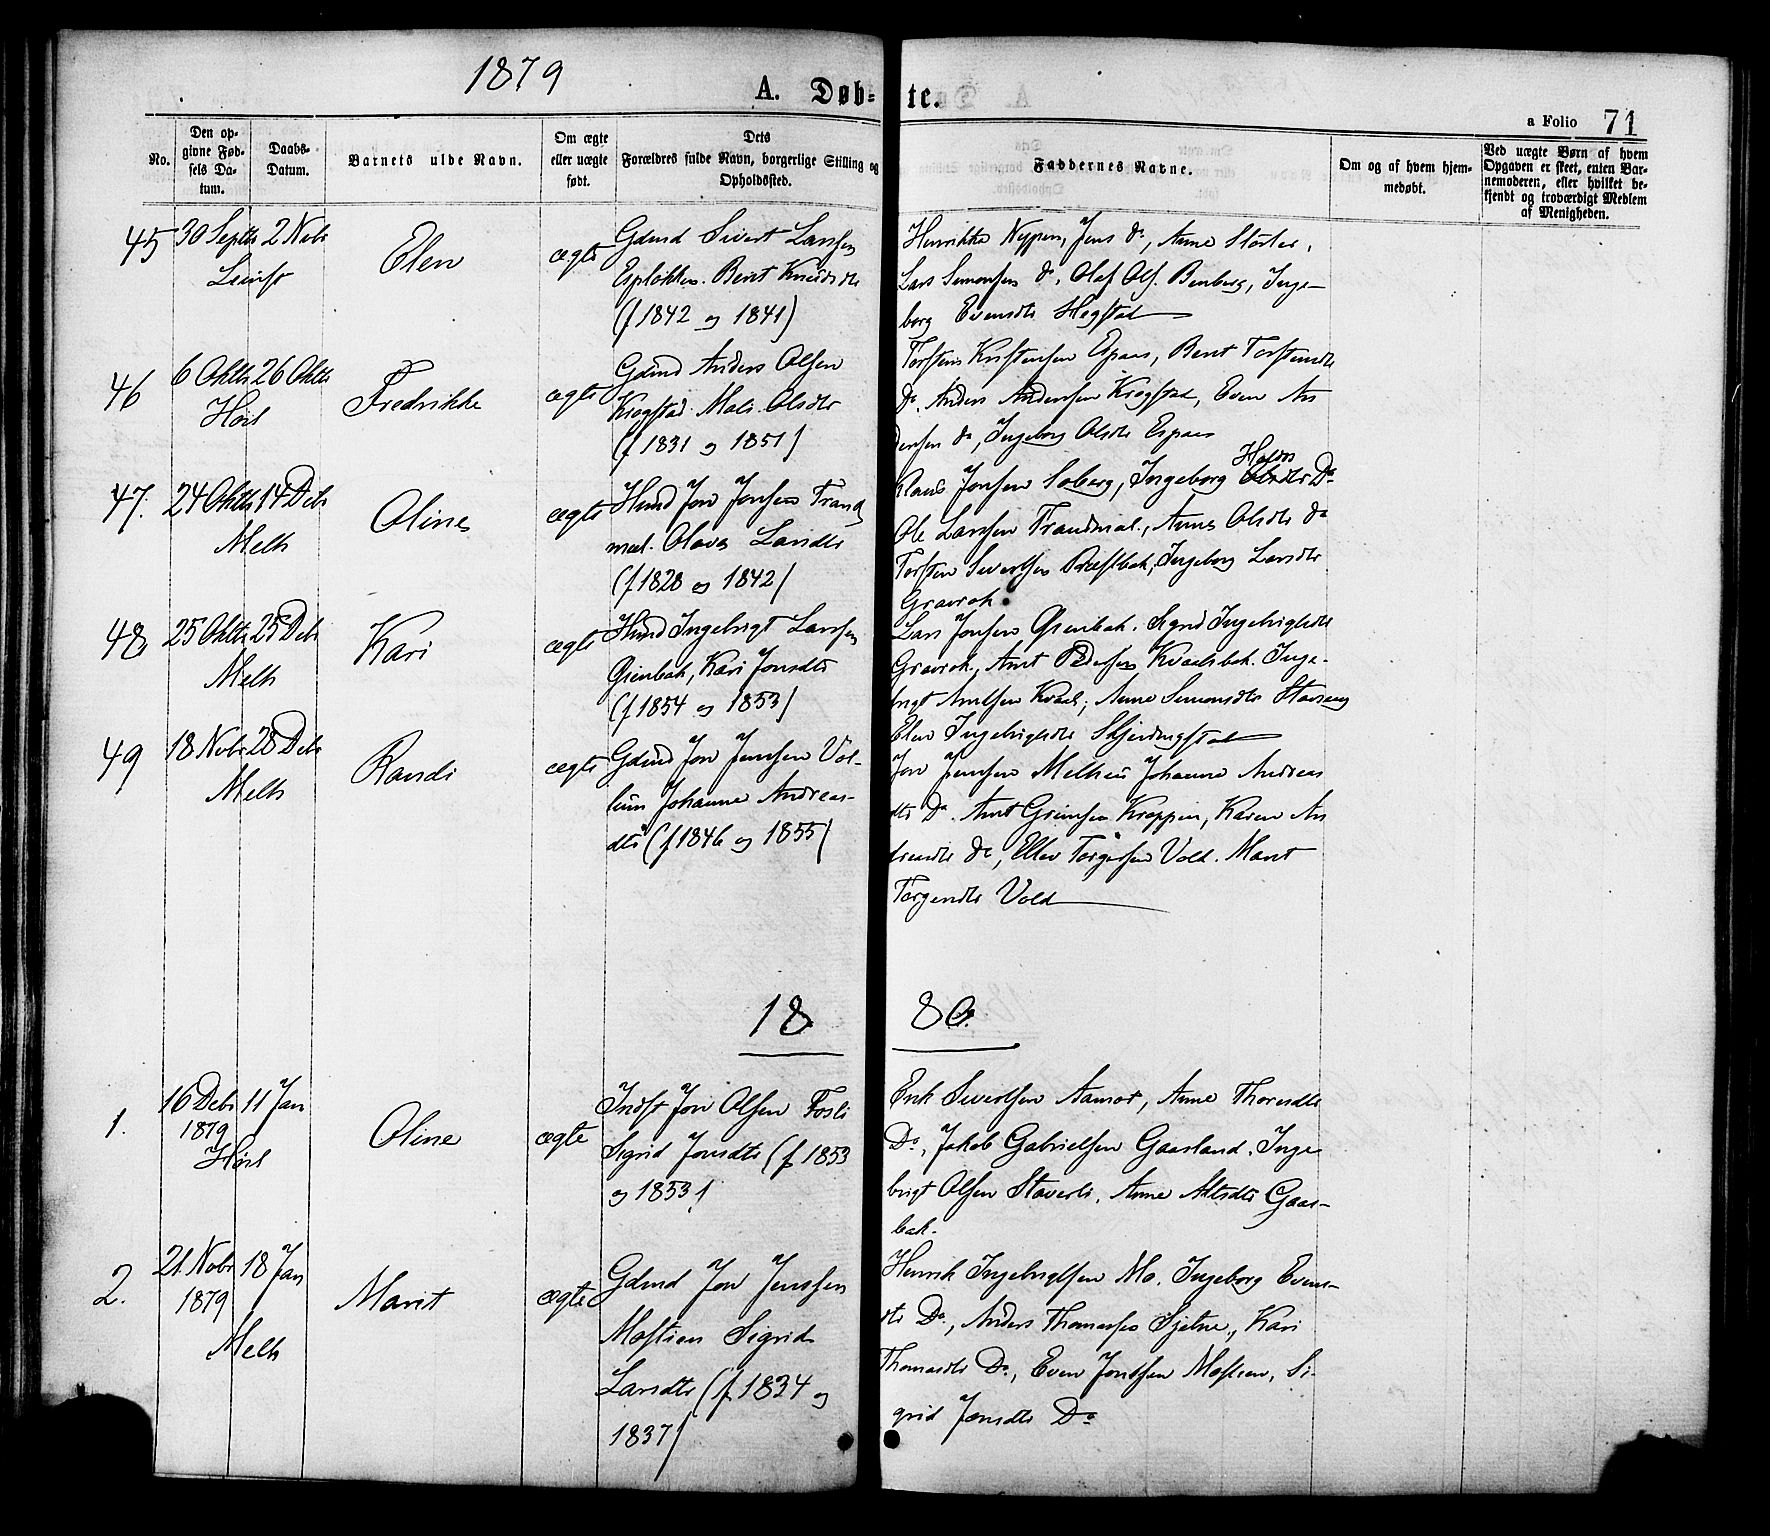 1879
A. Døb= te.
a Folio 71
No.
Den op-
givne Fød-
sels Da-
tum.
Daabs-
Datum.
Barnets fulde Navn.
Om ægte
eller uægte
født.
Dets
Forældres fulde Navn, borgerlige Stilling og
Opholdssted.
Faddernes Navne.
Om og af hvem hjem-
medøbt.
Ved uægte Børn af hvem
Opgaven er skeet, enten Bar-
nemoderen, eller hvilket be-
kjendt og troværdigt Medlem
af Menigheden.
45 30 Septbr 2 Nobr
Elen
ægte
Gdmd Sivert Larssen
Esplökken. Berit Knudsdtr
(f 1842 og 1841)
Henrikke Nypen, Jens do, Anne Storler,
Lars Simonsen do, Olaf Ols. Benberg, Inge-
borg Evensdtr Hegstad
46 6 Oktbr 26 Oktbr
Höil
Fredrikke
ægte
Gdmd Anders Olsen
Krogstad. Mali Olsdtr
(f 1831 og 1851)
Torsten Kristensen Espaas, Berit Torstensdtr
do. Anders Andersen Krogstad, Even An
dersen do, Ingeborg Olsdtr Espaas
47. 24 Oktbr 14 Debr
Melh
Oline
ægte
Hmd Jon Jonsen Trand
mæl. Olava Larsdtr
(f 1828 og 1842)
Klaus Jonsen Soberg, Ingeborg Do
Ole Larssen Trandmæl., Anne Olsdtr do
Torsten Sivertsen Præstbak, Ingeborg Larsdtr
Gravrok
48, 25 Oktbr 25 Debr
Melh
Kari
ægte
Hmd Ingebrigt Larssen
Grenbak, Kari Jonsdtr
(f 1854 og 1853)
Lars Jonsen Grenbak. Sigrid Ingebrigtsdtr
Gravrok, Arnt Pedersen Kvaalsbak. Inge-
brigt Arntsen Kvaal, Anne Simonsdtr Stavseng
Elen Ingebrigtsdtr Skjerdingstad
49 18 Nobr 28 Debr
Melh
Randi
ægte
Gdmd Jon Jenssen Vol-
lum Johanne Andreas-
dtr (f 1846 og 1855)
Jon Jenssen Melhus Johanne Andreas
dtr Do. Arnt Grimsen Kroppen, Karen An
dreasdtr do, Ellev Torgersen Vold. Marit
Torgersdtr Vold
18 80.
1. 16 Debr 11 Jan
1879
Höil
Oline
ægte
Indst Jon Olsen Fosli
Sigrid Jonsdtr (f 1853
og 1853)
Erik Sivertsen Aamot, Anne Thoresdtr
Do, Jakob Gabrielsen Gaasland, Inge
brigt Olsen Staverli, Anne Gaas-
bak.
2. 21 Nobr 18 Jan
1879
Melh
Marit
ægte
Gdmd Jon Jenssen
Mostien Sigrid
Larsdtr (f 1834 og
1837)
Henrik Ingebrigtsen Mo. Ingeborg Evens-
dtr Do, Anders Thomassen Sjetne, Kari
Thomasdtr Do, Even Jonssen Mostien, Si-
grid Jonsdtr Do